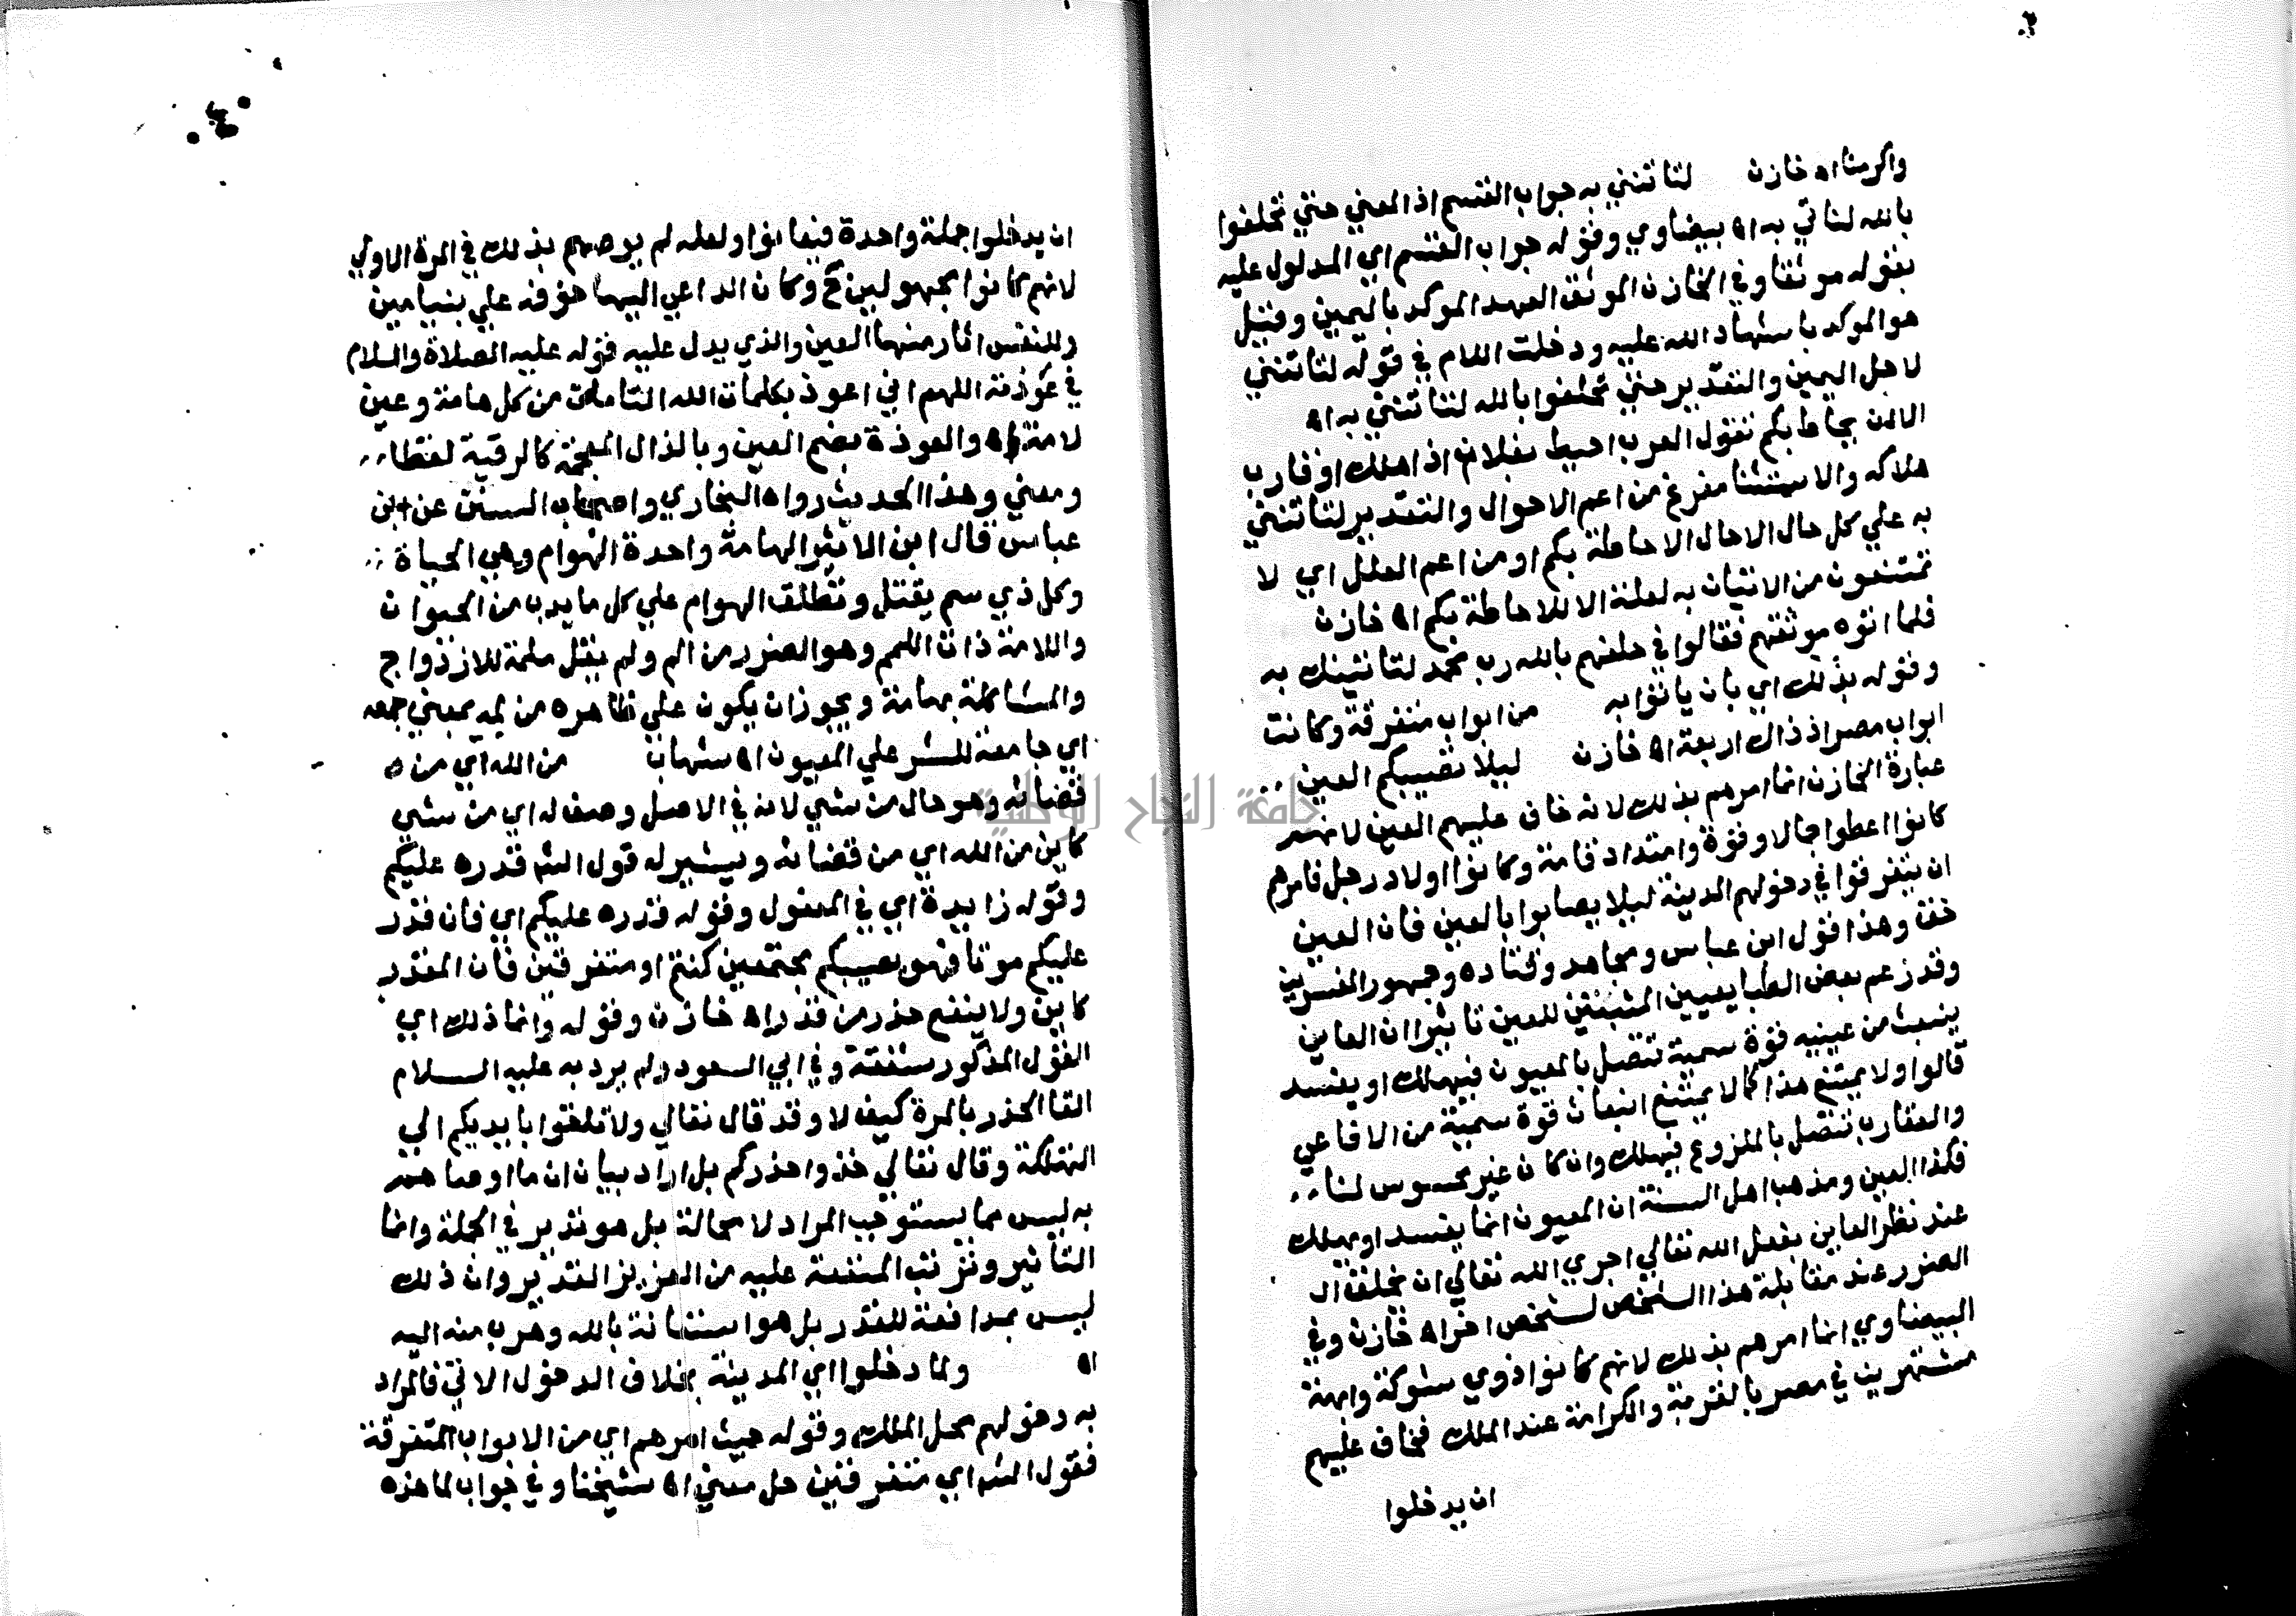 ٣٠
واكرمنا اه خازن لتاتنني به جواب القسم اذ المعني حتي تحلفوا
بالله لتاتي به اه بيضاوي وقوله جواب القسم اي المدلول عليه
بقوله موثقا وفي الخازن الموثق العهد الموكد باليمين وقيل
هو الموكد باشهاد الله عليه ودخلت اللام في قوله لتاتنني
لاجل اليمين والتقدير حتي تحلفوا بالله لتاتنني به اه
الا ان يحاط بكم تقول العرب احيط بفلان اذا هلك او قارب
هلاكه والاستثنا مفرغ من اعم الاحوال والتقدير لتاتنني
به علي كل حال الا حال الاحاطة بكم او من اعم العلل اي لا
تمتنعون من الاتيان به لعلة الا للاحاطة بكم اه خازن
فلما اتوه موثقهم فقالوا في حلفهم بالله رب محمد لتاتينك به
وقوله بذلك اي بان ياتوا به من ابواب متفرقة وكانت
ابواب مصر اذ ذاك اربعة اه خازن ليلا تصيبكم العين
عبارة الخازن انما امرهم بذلك لانه خاف عليهم العين لانهم
كانوا اعطوا جمالا وقوة وامتداد قامة وكانوا اولاد رجل فامرهم
ان يتفرقوا في دخولهم المدينة ليلا يصابوا بالعين فان العين
حق وهذا قول ابن عباس ومجاهد وقتاده وجمهور المفسرين
وقد زعم بعض الطبايعيين المثبتين للعين تاثيرا ان العاين
ينبعث من عينيه قوة سمية تتصل بالمعيون فيهلك او يفسد
قالوا ولا يمتنع هذا كما لا يمتنع انبعاث قوة سمية من الافاعي
والعقارب تتصل بالملزوع فيهلك وان كان غير محسوس لنا
فكذا العين ومذهب اهل السنة ان المعيون انما يفسد او يهلك
عند نظر العاين بفعل الله تعالي اجري الله تعالي ان يخلق الـ
الضرر عند مقابلة هذا الشخص لشخص اخر اه خازن وفي
البيضاوي انما امرهم بذلك لانهم كانوا ذوي شوكة وابهة
مشتهرين في مصر بالقربة والكرامة عند الملك فخاف عليهم
ان يدخلوا
ان يدخلوا جملة واحدة فيعانوا ولعله لم يوصهم بذلك في المرة الاولي
لانهم كانوا مجهولين ح وكان الداعي اليها خوفه علي بنيامين
وللنفس اثار منها العين والذي يدل عليه قوله عليه الصلاة والسلام
في عوذته اللهم اني اعوذ بكلمات الله التامات من كل هامة وعين
لامة اه والعوذة بضم العين وبالذال المعجمة كالرقية لفظا
ومعني وهذا الحديث رواه البخاري واصحاب السنن عن ابن
عباس قال ابن الاثير الهامة واحدة الهوام وهي الحياة
وكل ذي سم يقتل وتطلق الهوام علي كل ما يدب من الحيوان
واللامة ذات اللمم وهو الضرر من الم ولم يقل ملمة للازذواج
والمشاكلة بهامة ويجوز ان يكون علي ظاهره من لمه بمعني جمعه
اي جامعة للشر علي المعيون اه شهاب من الله اي من ه
قضائه وهو حال من شي لانه في الاصل وصف له اي من شي
كاين من الله اي من قضائه ويشير له قول الش قدره عليكم
وقوله زايدة اي في المفعول وقوله قدره عليكم اي فان قدر
عليكم موتا فهو يصيبكم مجتمعين كنتم او متفرقين فان المقدر
كاين ولا ينفع حذر من قدر اه خازن وقوله وانما ذلك اي
القول المذكور شفقة وفي ابي السعود ولم يرد به عليه السلام
القا الحذر بالمرة كيف لا وقد قال تعالي ولا تلقوا بايديكم الي
التهلكة وقال تعالي خذوا حذركم بل اراد بيان ان ما اوصاهم
به ليس مما يستوجب المراد لا محالة بل هو تدبير في الجملة وانما
التاثير وترتب المنفعة عليه من العزيز القدير وان ذلك
ليس بمدافعة للقدر بل هو استعانة بالله وهرب منه اليه
اه ولما دخلوا اي المدينة بخلاف الدخول الاتي فالمراد
به دخولهم محل الملك وقوله حيث امرهم اي من الابواب المتفرقة
فقول الش اي متفرقين حل معني اه شيخنا وفي جواب لما هذه
جامعة النجاح الوطنية